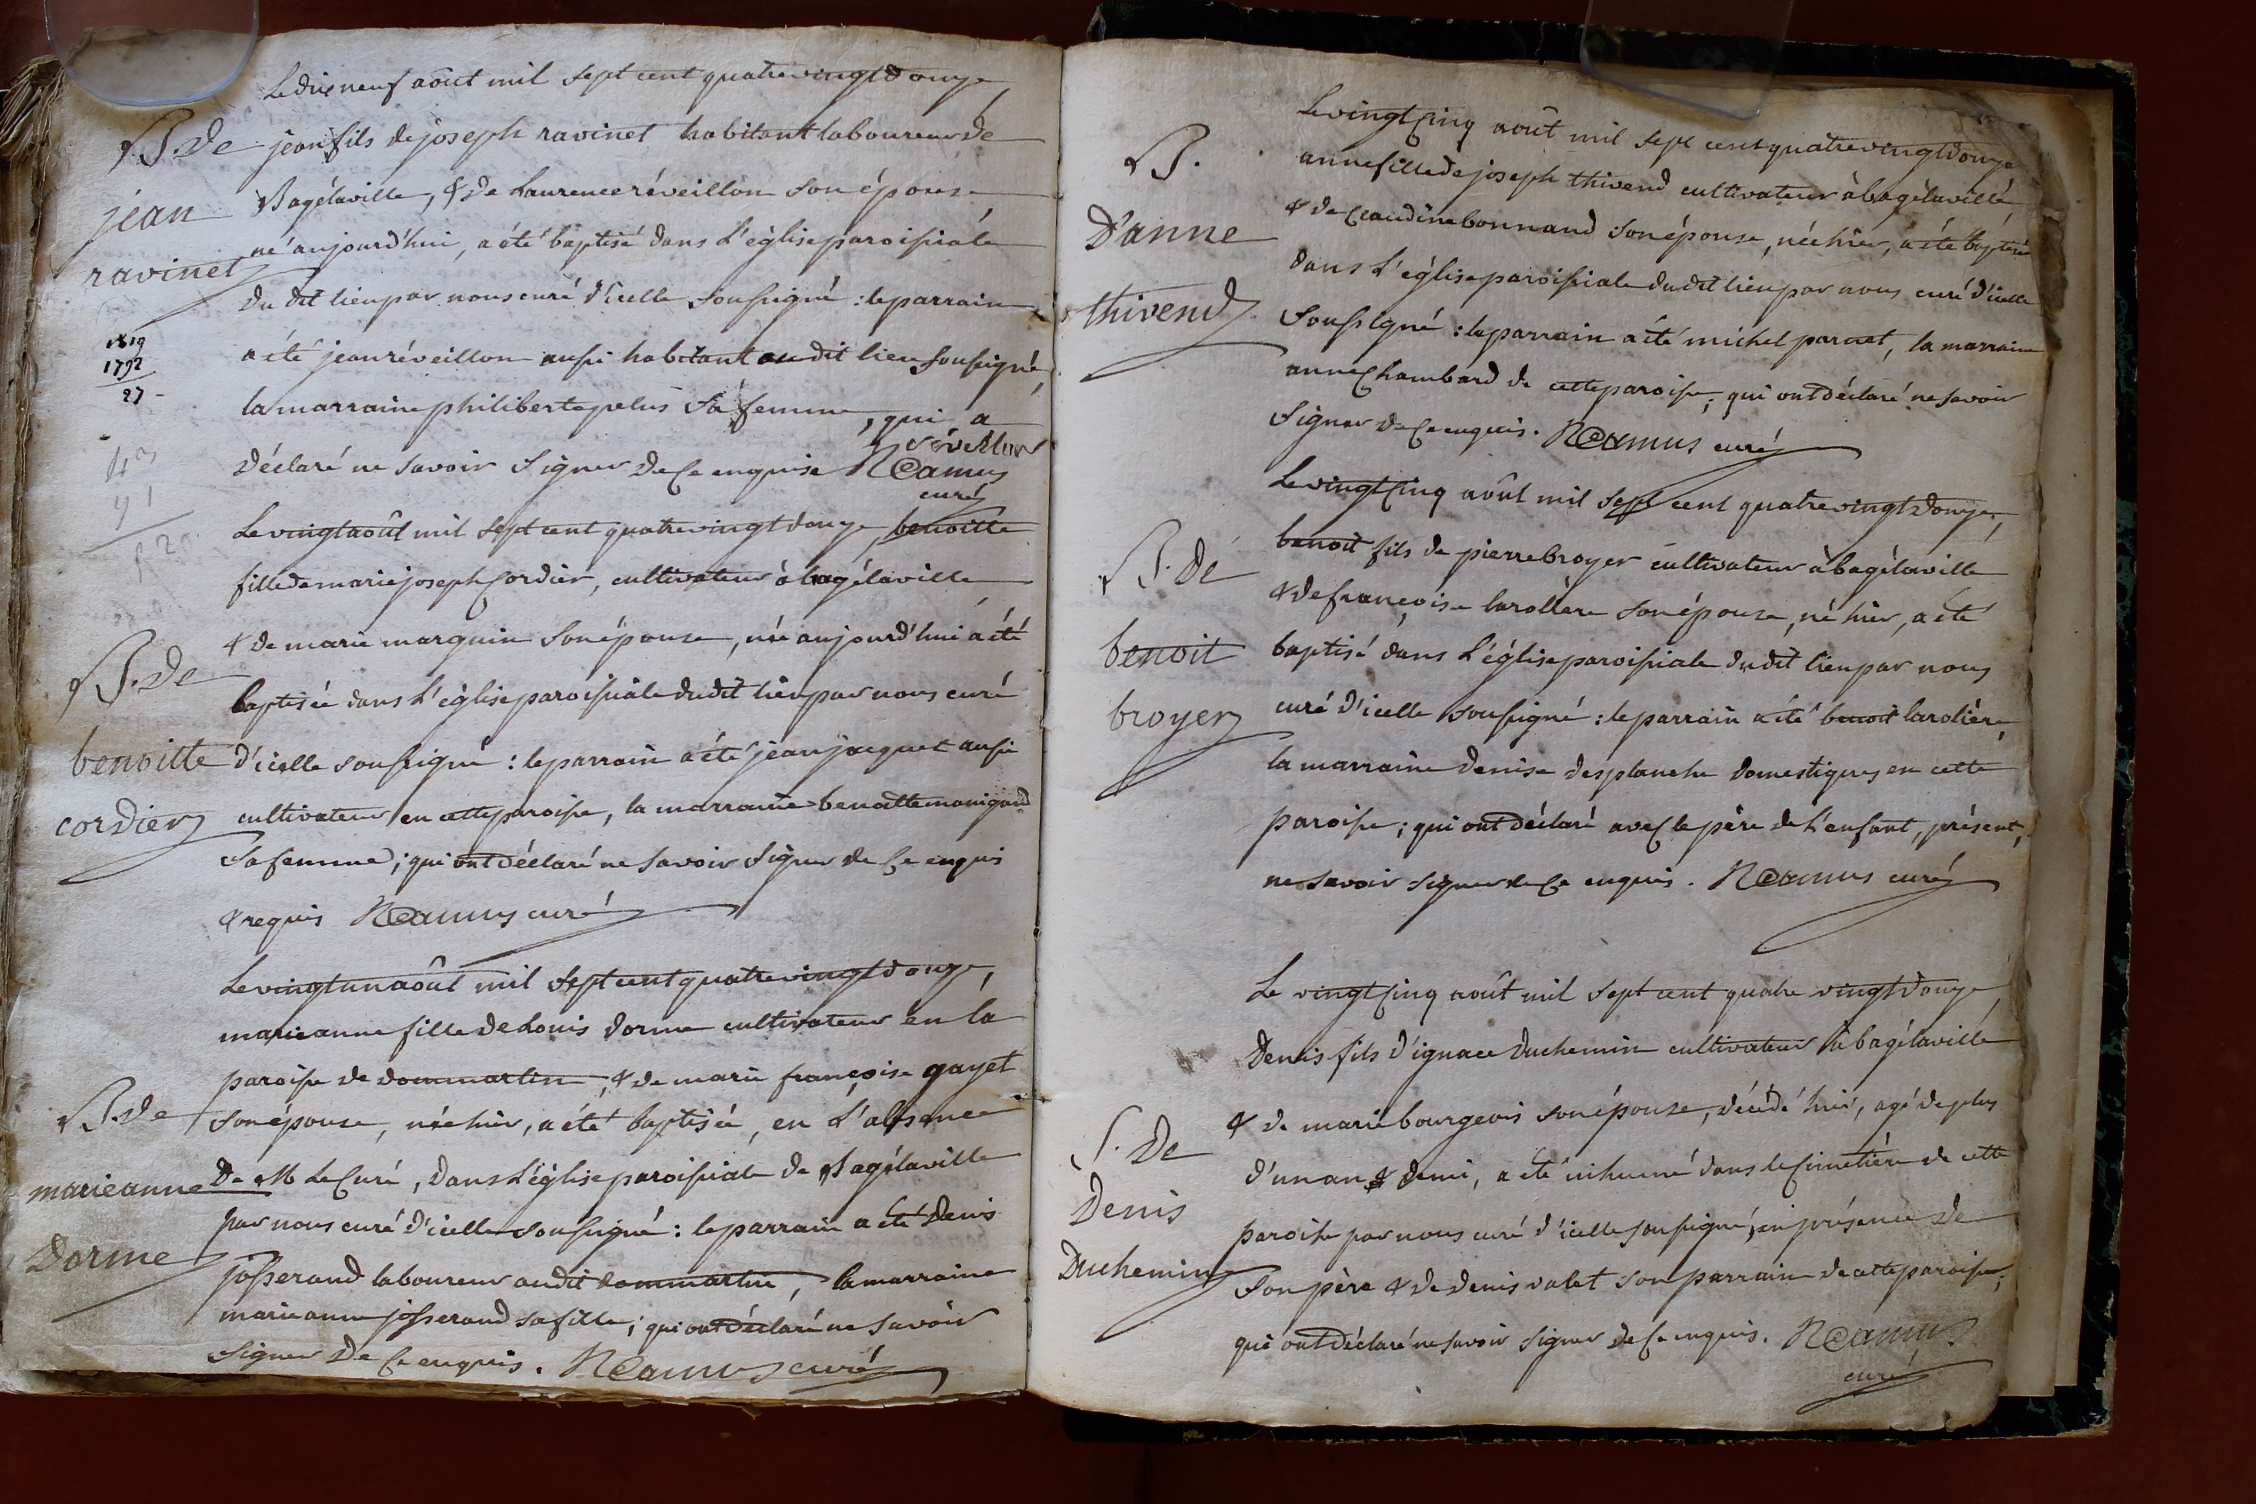 Le dix neuf aôut mil sept cent quatre vingt douze
B. de
jean fils de joseph ravinet habitant laboureur de
jean
Bagélaville, & de Laurence réveillon son épouse
ravinet
né aujourd'hui, a été baptisé dans l'église paroissiale
du dit lieu par nous curé d'icelle soussigné : le parrain
1819
1792
27
a été jean réveillon aussi habitant au dit lieu soussigné,
la marraine philiberte pelus sa femme, qui a
réveillon
déclaré ne savoir signer de ce enquise Neamus
curé
Le vingt aoûst mil sept cent quatre vingt douze, benoitte
fille de marie joseph Cordier, cultivateur à bagélaville
& de marie marguin son épouse, née aujourd'hui a été
B. de
baptisée dans l'église paroissiale du dit lieu par nous curé
benoitte
d'icelle soussigné : le parrain a été jean jacquet aussi
cordier
cultivateur en cette paroisse, la marraine benoitte monigand
sa femme ; qui ont déclaré ne savoir signer de ce enquis
& requis Neamus curé
Le vingt un aôut mil sept cent quatre vingt douze,
marie anne fille de Louis dorme cultivateur en la
paroisse de dommartin, & de marie françoise gayet
B. de
son épouse, née hier, a été baptisée, en l'absence
marie anne
De M le Curé, dans l'église paroissiale de Bagélaville
par nous curé d'icelle soussigné : le parrain a été Denis
Dorme
josserand laboureur au dit dommartin, la marraine
marie anne josserand sa fille ; qui ont déclaré ne savoir
signer de ce enquis. Neamus curé
Le vingt Cinq aoüt mil sept cent quatre vingt douze
B.
anne fille de joseph thivend cultivateur à bagélaville
D'anne
& de Claudine bonnand son épouse, née hier, a été baptisée
dans l'église paroissiale du dit lieu par nous curé d'icelle
thivend
soussigné : le parrain a été michel parnet, la marraine
anne Chambard de cette paroisse ; qui ont déclaré ne savoir
signer de ce enquis. Neamus curé
Le vingt Cinq aôut mil sept cent quatre vingt douze,
B. de
benoit fils de pierre broyer cultivateur à bagélaville
& de françoise larollere son épouse, né hier, a été
benoit
baptisé dans l'église paroissiale du dit lieu par nous
broyer
curé d'icelle soussigné : le parrain a été benoit larolière,
la marraine denise desplanche domestiques en cette
paroisse ; qui ont déclaré avec le père de l'enfant, présent,
ne savoir signer de ce enquis. Neamus curé
Le vingt Cinq aoüt mil sept cent quatre vingt douze
Denis fils d'ignace Duchemin cultivateur à bagélaville
S. De
& de marie bourgeois son épouse, décédé hier, agé de plus
d'un an & demi, a été inhumé dans le cimetière de cette
Denis
paroisse par nous curé d'icelle soussigné, en présence de
Duchemin
son père & de denis valet son parrain de cette paroisse ;
qui ont déclaré ne savoir signer de ce enquis. Neamus
curé